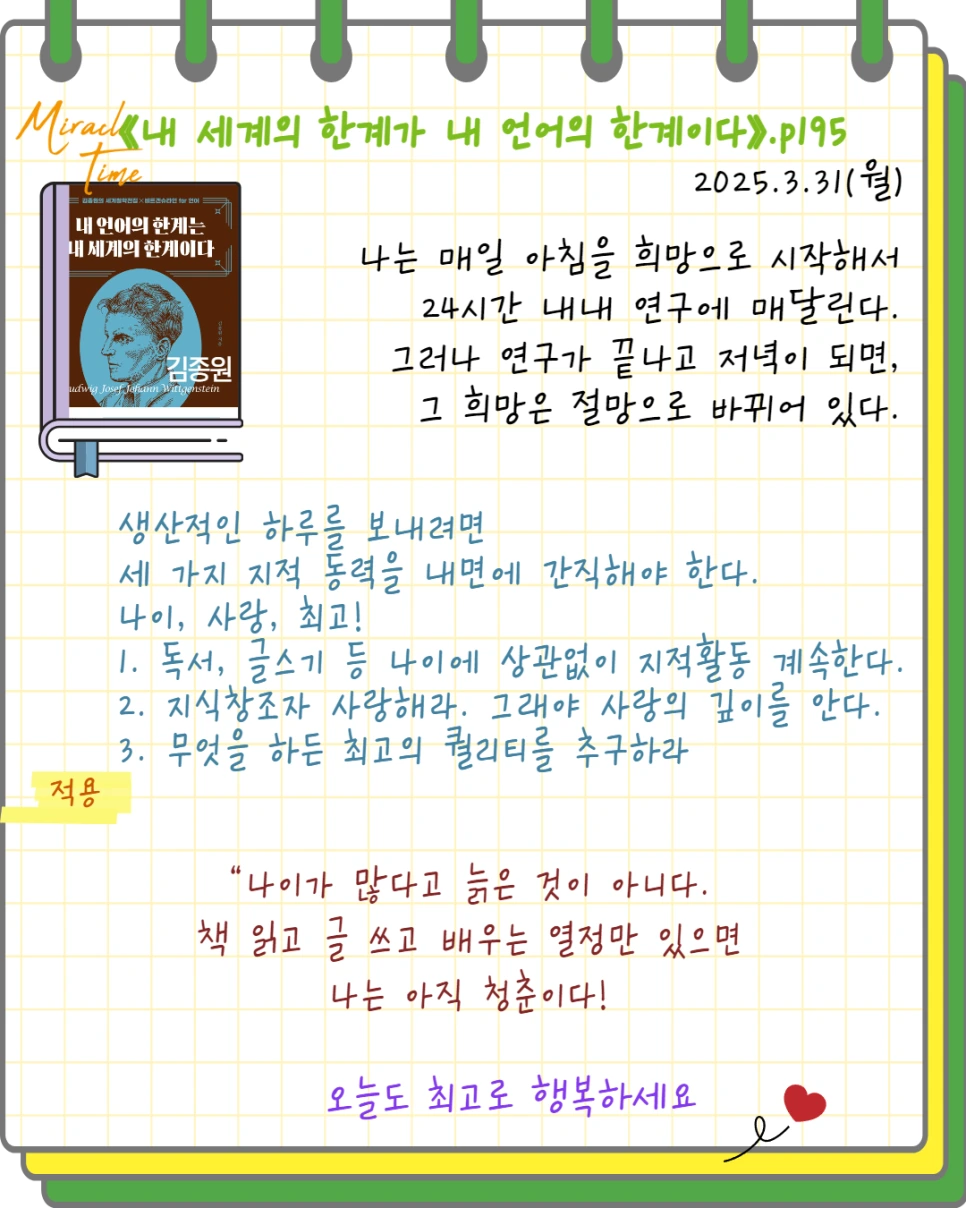 Miracle
Time
《내 세계의 한계가 내 언어의 한계이다》.p195
2025.3.31(월)
김종원의 세계철학전집 × 비트겐슈타인 for 언어
내 언어의 한계는
내 세계의 한계이다
김종원
udwig Josef Johann Wittgenstein
나는 매일 아침을 희망으로 시작해서
24시간 내내 연구에 매달린다.
그러나 연구가 끝나고 저녁이 되면,
그 희망은 절망으로 바뀌어 있다.
생산적인 하루를 보내려면
세 가지 지적 동력을 내면에 간직해야 한다.
나이, 사랑, 최고!
1. 독서, 글스기 등 나이에 상관없이 지적활동 계속한다.
2. 지식창조자 사랑해라. 그래야 사랑의 깊이를 안다.
3. 무엇을 하든 최고의 퀄리티를 추구하라
적용
“나이가 많다고 늙은 것이 아니다.
책 읽고 글 쓰고 배우는 열정만 있으면
나는 아직 청춘이다!
오늘도 최고로 행복하세요